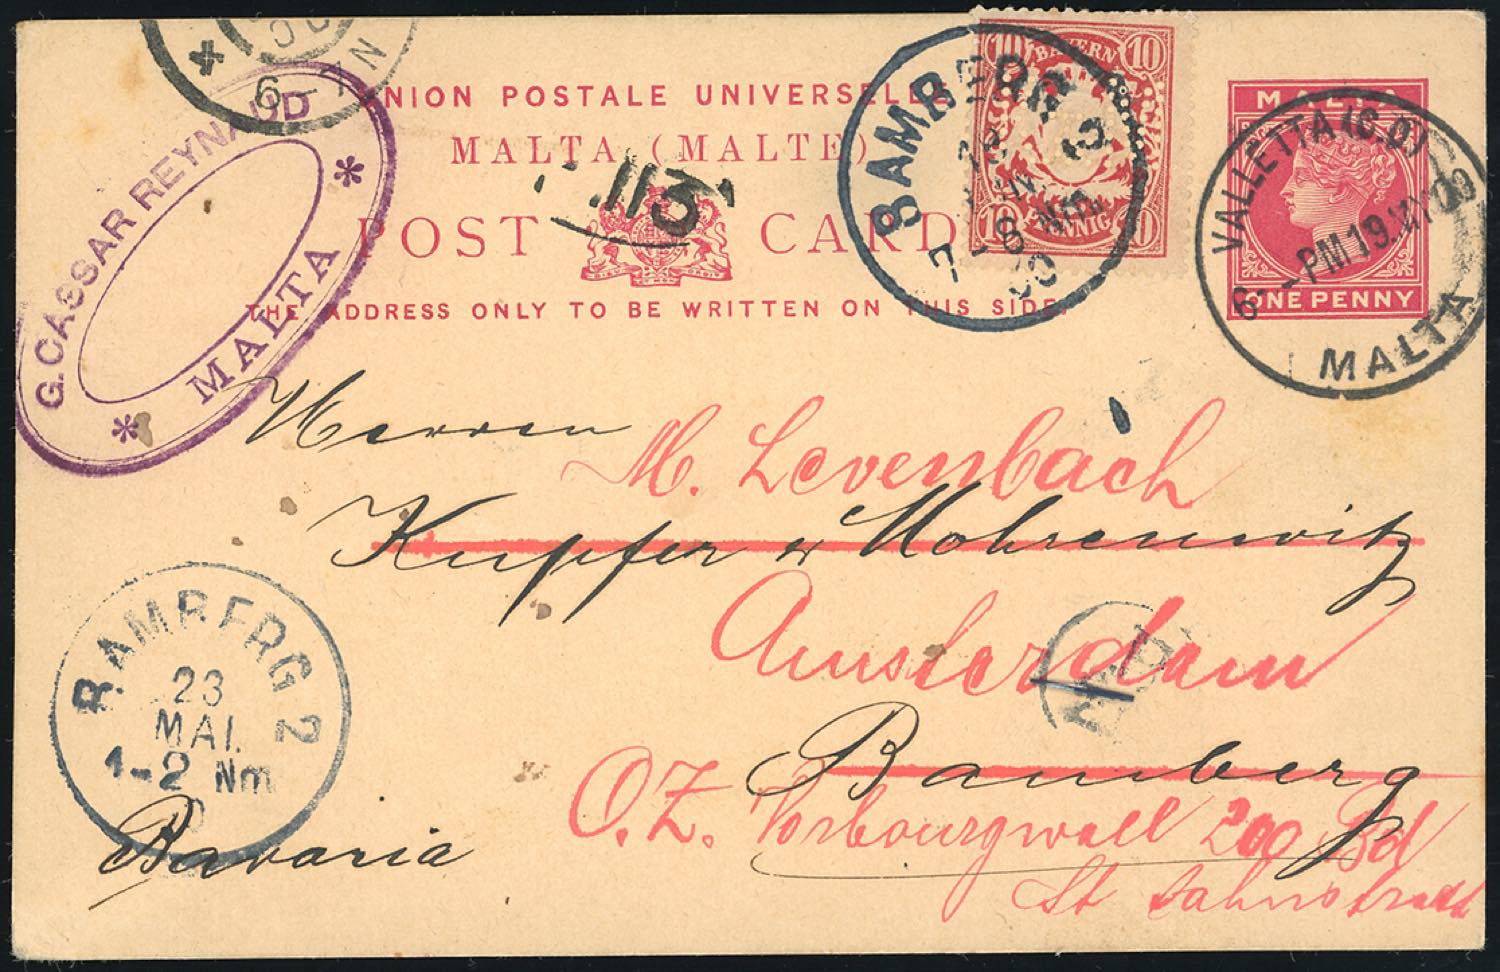 6-7 N
UNION POSTALE UNIVERSELLE
MALTA (MALTE)
POST CARD
THE ADDRESS ONLY TO BE WRITTEN ON THIS SIDE.
G. CASSAR REYNAUD
* MALTA *
113
BAYERN
10 10
10 10
PFENNIG
BAMBERG
7-8 Nm
00
MALTA
ONE PENNY
VALLETTA (G.D)
6- PM 19 MY 00
MALTA
Herren
M. Levenbach
Kupfer & Mohrenwitz
Amsterdam
Bamberg
O.Z. Vorbourgwall 200 Bd
St
BAMBERG 2
23
MAI.
1-2 Nm
Bavaria